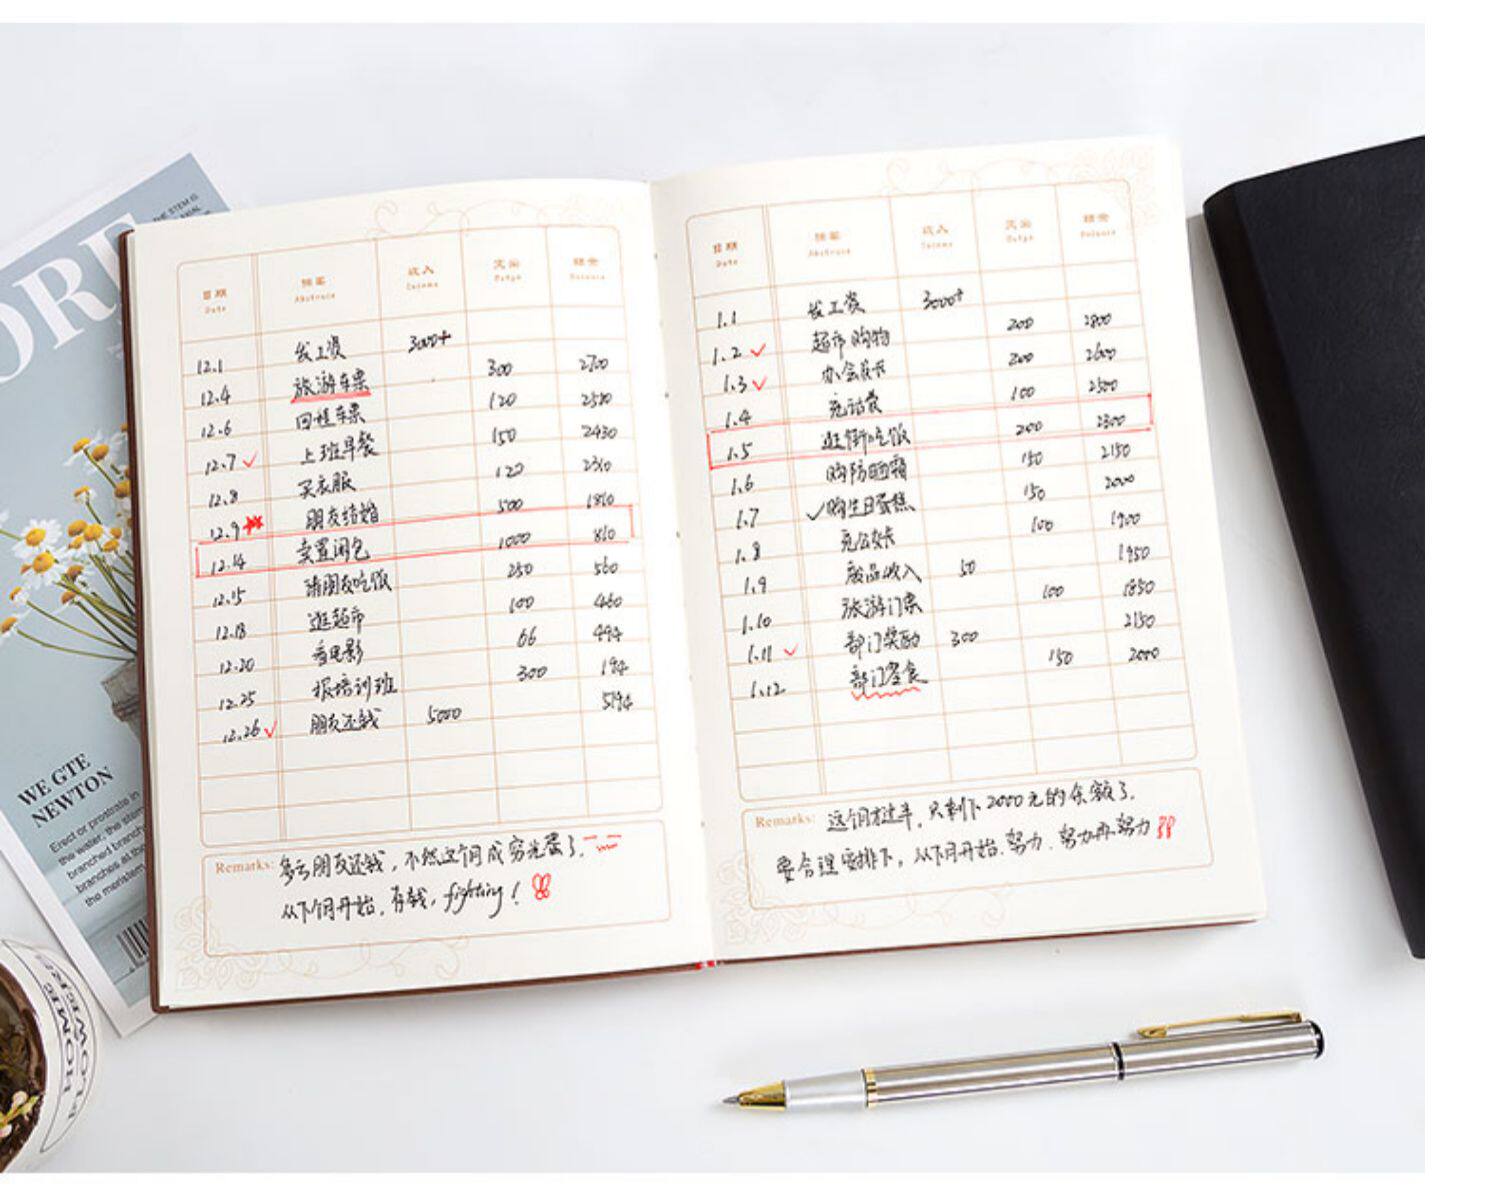 THE STEM IS
ORE
WE GTE
NEWTON
Erect or prostrate in
the water, the stem
branched branch
branches at the
the meristem
FLOWER
HOME
日期 摘要 收入 支出 结余
Date Abstract Income Outgo Balance
12.1 发工资 3000+
12.4 旅游车票 300 2700
12.6 回程车票 120 2580
12.7 上班早餐 150 2430
12.8 买衣服 120 2310
12.9 朋友结婚 500 1810
12.14 卖置闲包 1000 810
12.15 请朋友吃饭 250 560
12.18 逛超市 100 460
12.20 看电影 66 494
12.25 报培训班 300 194
12.26 朋友还钱 5000 5194
Remarks: 多亏朋友还钱,不然这个月成穷光蛋了.
从下个月开始.存钱, fighting!
日期 摘要 收入 支出 结余
Date Abstract Income Outgo Balance
1.1 发工资 3000+
1.2 超市购物 200 2800
1.3 办会员卡 200 2600
1.4 充话费 100 2500
1.5 逛街吃饭 200 2300
1.6 购防晒霜 150 2150
1.7 购生日蛋糕 150 2000
1.8 充公交卡 100 1900
1.9 废品收入 50 1950
1.10 旅游门票 100 1850
1.11 部门奖励 300 2150
1.12 部门零食 150 2000
Remarks: 这个月才过半,只剩下2000元的余额了.
要合理安排下,从下月开始.努力.努力再努力